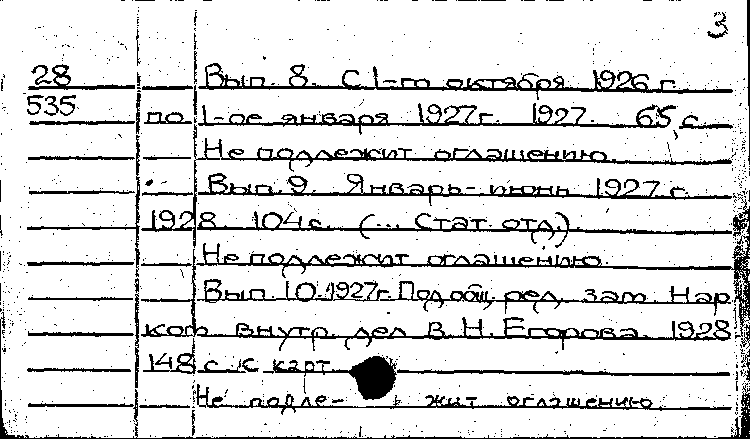 3
28 Вып. 8. С 1-го октября 1926 г.
535 по 1-ое января 1927 г. 1927. 65 с.
Не подлежит оглашению.
Вып. 9. Январь-июнь 1927 г.
1928. 104 с. (... Стат. отд.).
Не подлежит оглашению.
Вып. 10. 1927 г. Под общ. ред. зам. Нар
ком внутр. дел В. Н. Егорова. 1928
148 с. к карт.
Не подле- жит оглашению.